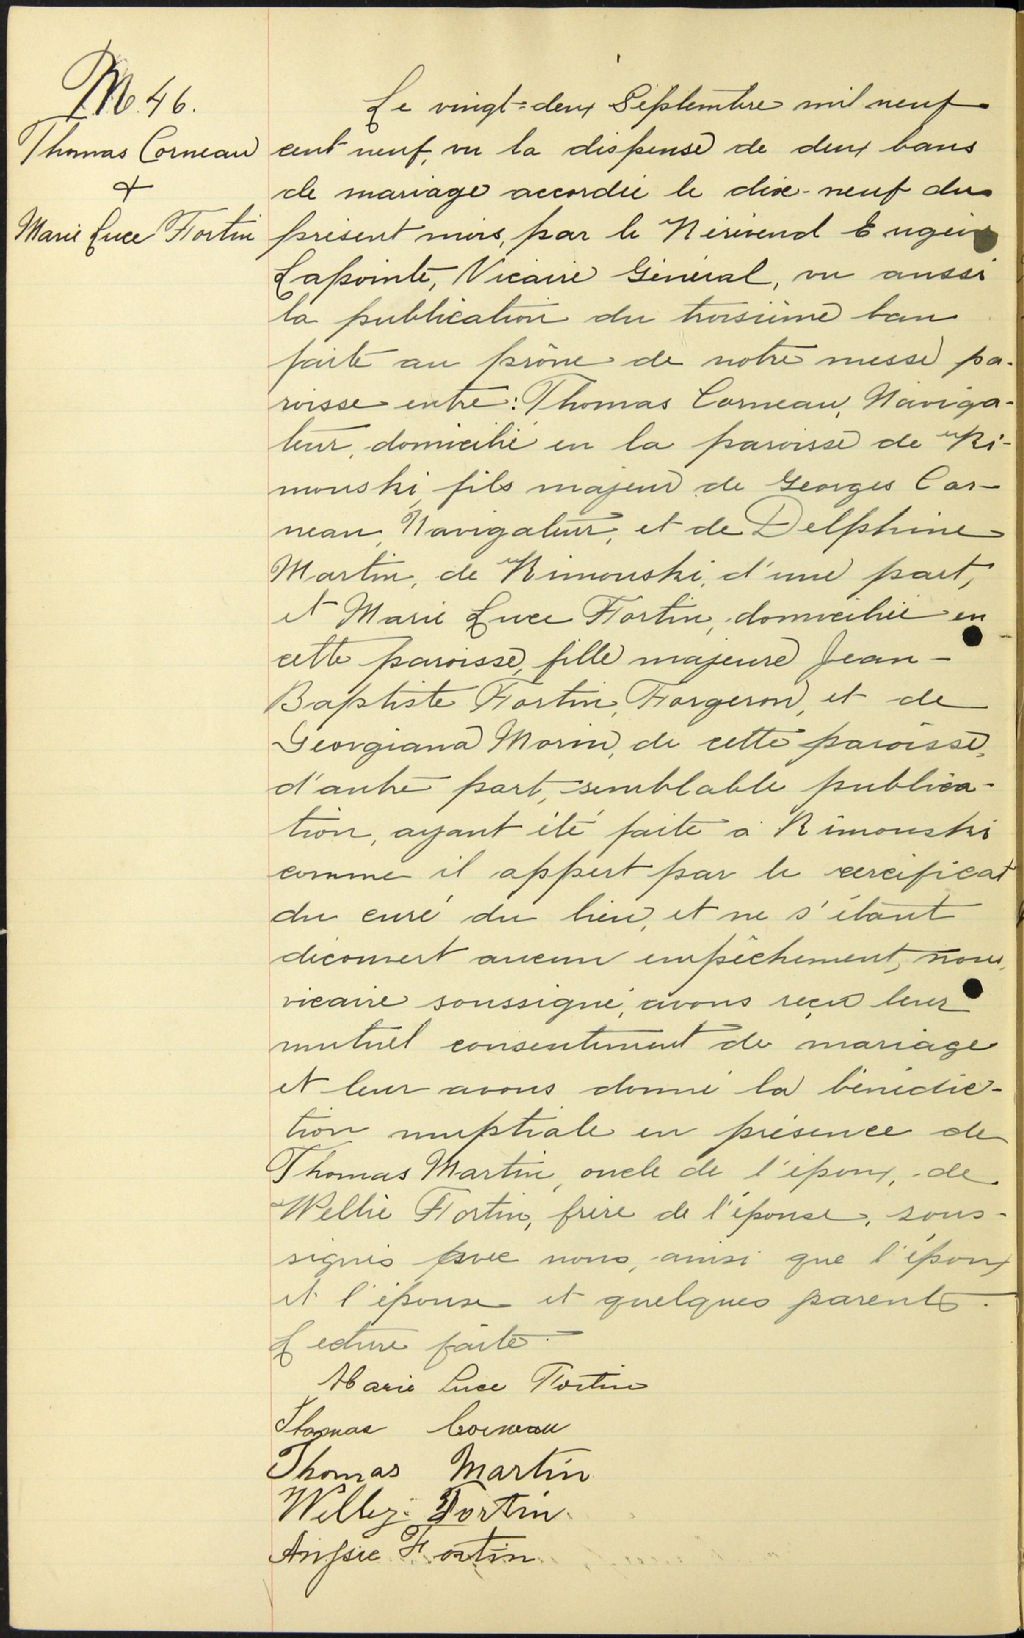 M. 46.
Thomas Corneau
&
Marie Luce Fortin
Le vingt-deux Septembre mil neuf
cent neuf, vu la dispense de deux bans
de mariage accordée le dix-neuf du
présent mois, par le Révérend Eugène
Lapointe, Vicaire Général, vu aussi
la publication du troisième ban
faite au prône de notre messe pa-
roisse entre: Thomas Corneau, Naviga-
teur, domicilié en la paroisse de Ri-
mouski, fils majeur de Georges Cor-
neau, Navigateur, et de Delphine
Martin, de Rimouski, d'une part,
et Marie Luce Fortin, domiciliée en
cette paroisse, fille majeure Jean-
Baptiste Fortin, Forgeron, et de
Georgiana Morin, de cette paroisse,
d'autre part, semblable publica-
tion, ayant été faite à Rimouski
comme il appert par le cercificat
du curé du lieu, et ne s'étant
découvert aucun empêchement, nous,
vicaire soussigné, avons reçu leur
mutuel consentement de mariage
et leur avons donné la bénédic-
tion nuptiale en présence de
Thomas Martin, oncle de l'époux, de
Wellie Fortin, frère de l'épouse, sous-
signés avec nous, ainsi que l'époux
et l'épouse et quelques parents.
Lecture faite.
Marie Luce Fortin
Thomas Corneau
Thomas Martin
Willey Fortin.
Fortin